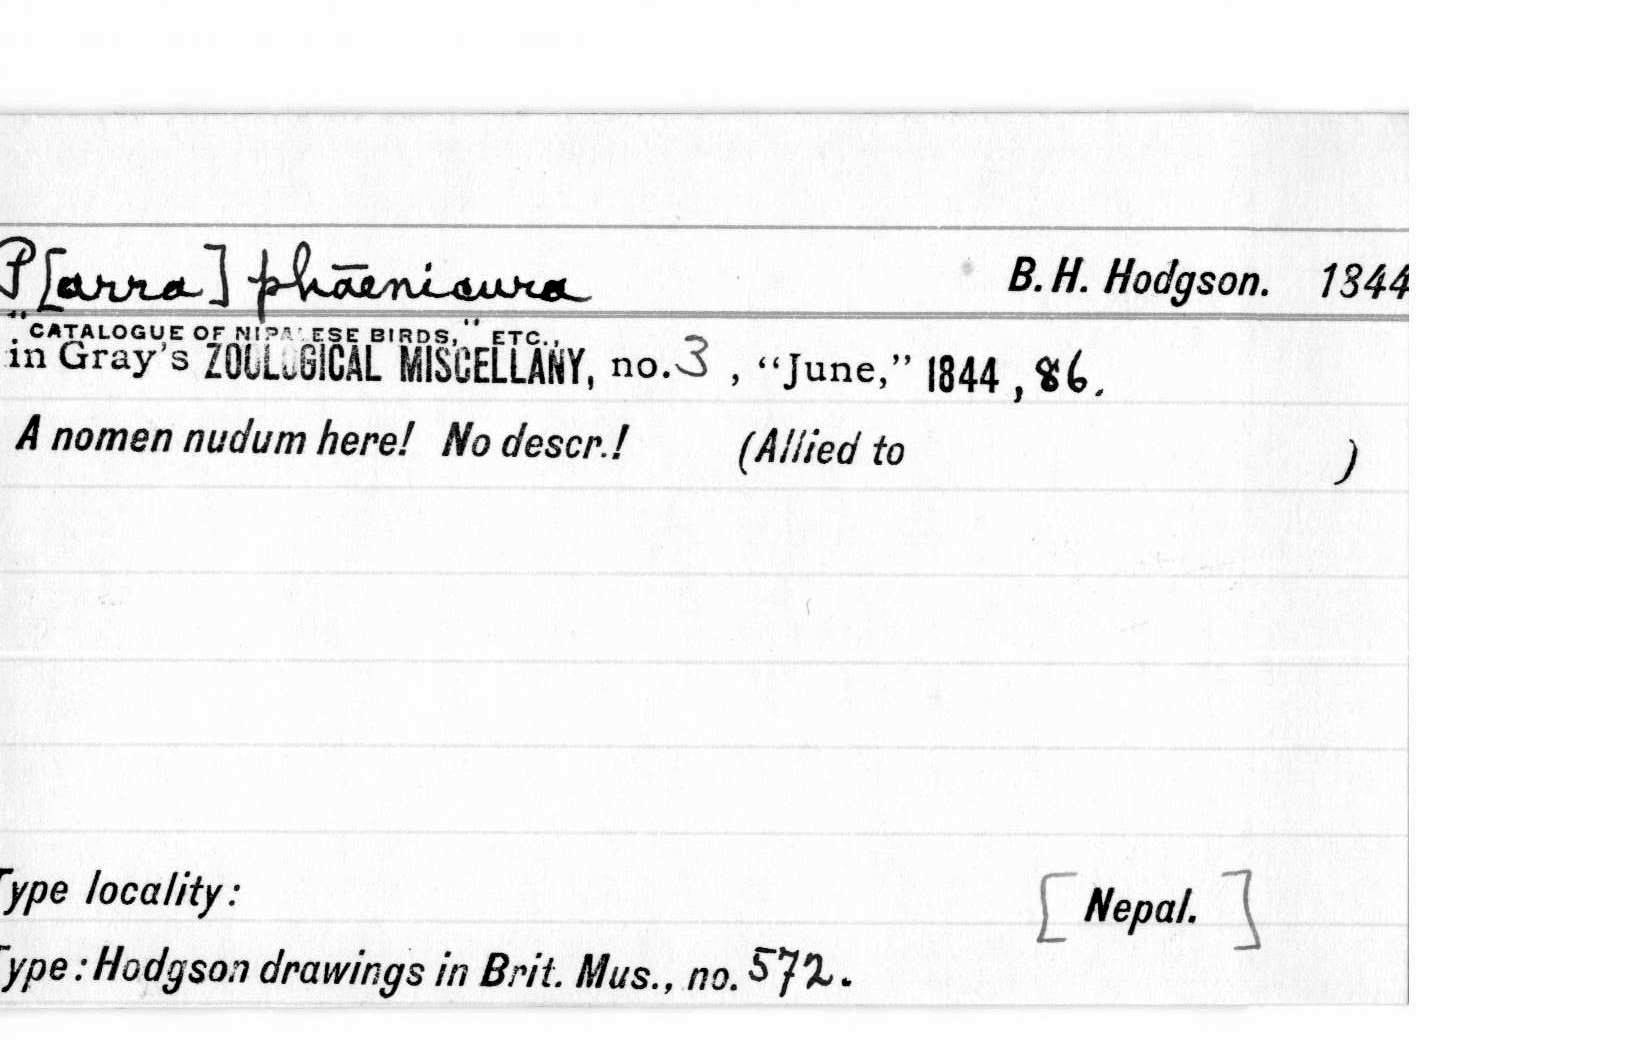 P[arra] phāenicura B. H. Hodgson. 1844
"CATALOGUE OF NIPALESE BIRDS," ETC.,
in Gray's ZOOLOGICAL MISCELLANY, no. 3, "June," 1844, 86.
A nomen nudum here! No descr.! (Allied to )
Type locality: [Nepal.]
Type: Hodgson drawings in Brit. Mus., no. 572.